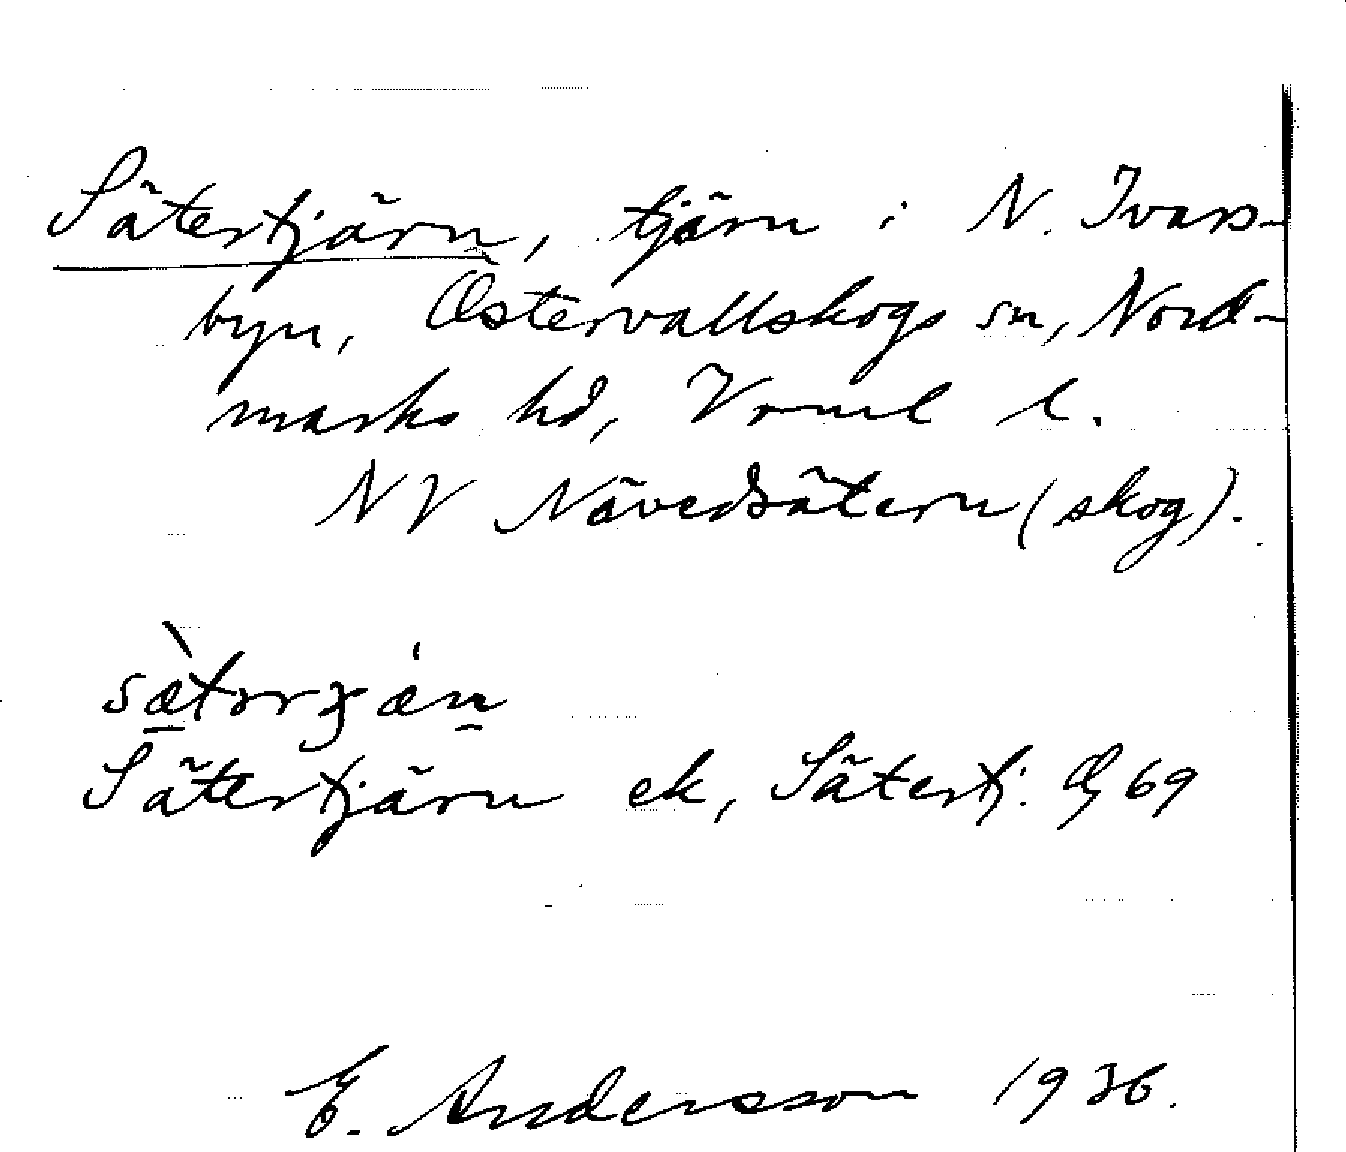 Sätertjärn, tjärn i N. Ivars-
byn, Östervallskogs sn, Nord-
marks hd, Vrml l.
NV Nävedsätern (skog).
Sätertjärn ek, Sätertj. 69
E. Andersson 1936.